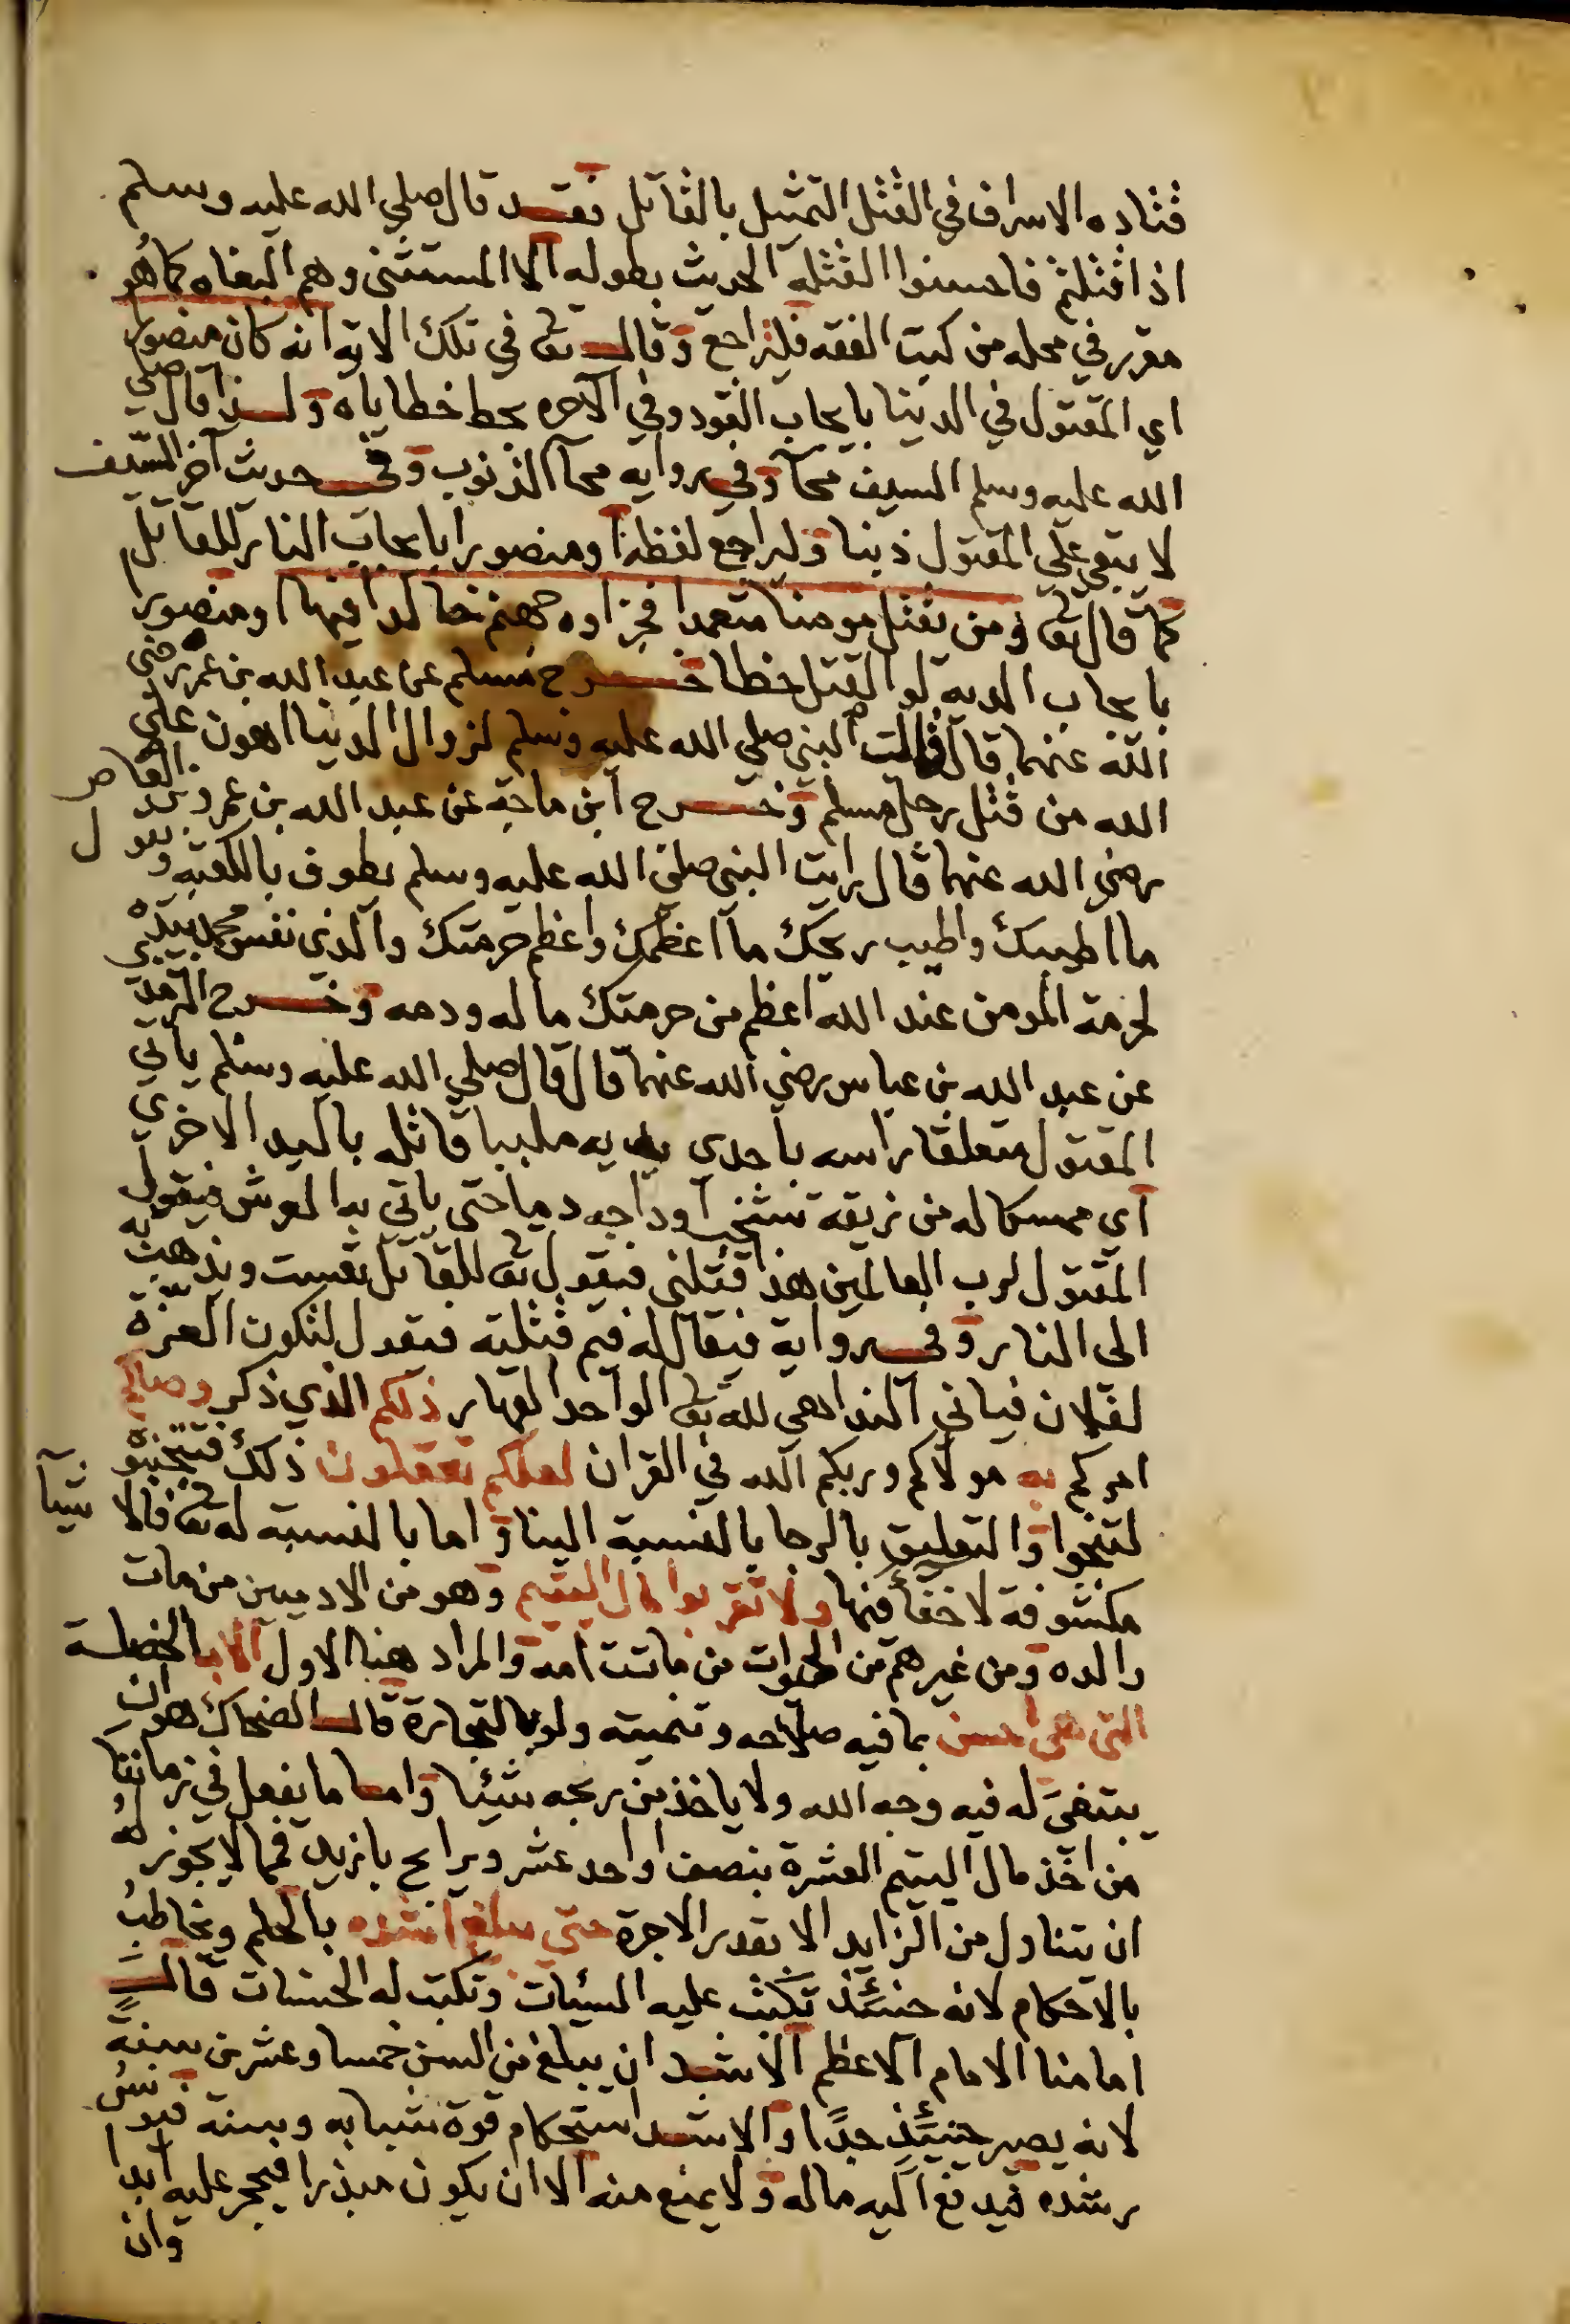 قتاده الاسراف في القتل التمثيل بالقاتل فقد قال صلي الله عليه وسلم
اذا قتلتم فاحسنوا القتله الحديث بطوله الا المستثني وهم البغاه كما هو
مقرر في محله من كتب الفقه فليراجع وقال تع في تلك الايه انه كان منصورا
اي المقتول في الدينا بايجاب القود وفي الآخره بحط خطاياه ولذا قال صلي
الله عليه وسلم السيف محآ وفي روايه محآ الذنوب وفي حديث آخر السيف
لا يبقي علي المقتول ذنبا وليراجع لفظه او منصورا بايجاب النار للقاتل
كما قال تع ومن يقتل مومنا متعمدا فجزاوه جهنم خالدا فيها او منصورا
بايجاب الديه لو القتل خطا خرج مسلم عن عبد الله بن عمر رضي
الله عنهما قال قال النبي صلي الله عليه وسلم لزوال الدنيا اهون علي
الله من قتل رجل مسلم وخرج ابن ماجه عن عبد الله بن عمرو بن العاص
رضي الله عنهما قال رايت النبي صلي الله عليه وسلم يطوف بالكعبه ويقول
ما اطيبك واطيب ريحك ما اعظمك واعظم حرمتك والذي نفس محمد بيده
لحرمة المومن عند الله اعظم من حرمتك ماله ودمه وخرج الترمذي
عن عبد الله بن عباس رضي الله عنهما قال قال صلي الله عليه وسلم ياتي
المقتول متعلقا راسه باحدي يديه ملببا قاتله باليد الاخري
اي ممسكا له من زيقه تشخب اوداجه دما حتي ياتي به العرش فيقول
المقتول لرب العالمين هذا قتلني فيقول تع للقاتل تعست ويذهب به
الى النار وفي رواية فيقال له فيم قتلته فيقول لتكون العزة
لفلان فياتي الندا هي لله تع الواحد القهار ذلكم الذي ذكر وصاكم
امركم به مولاكم وربكم الله في القران لعلكم تعقلون ذلك فتجتنبوه
لتنجوا والتعليق بالرجا بالنسبة الينا واما بالنسبة له تع فالاشيآ
مكشوفة لا خفآ فيها ولا تقربوا مال اليتيم وهو من الادميين من مات
والده ومن غيرهم من الحيوات من ماتت امه والمراد هنا الاول الا بالخصلة
التي هي احسن بما فيه صلاحه وتنميته ولو بالتجارة قال الضحاك هو ان
يبتغي له فيه وجه الله ولا ياخذ من ربحه شيئا واما ما يفعل في زماننا
من اخذ مال اليتيم العشرة بنصف او احد عشر ويرابح بازيد فمما لا يجوز له
ان يتناول من الزايد الا بقدر الاجرة حتي يبلغ اشده بالحلم ويخاطب
بالاحكام لانه حينئذ تكتب عليه السيئات وتكتب له الحسنات قال
امامنا الامام الاعظم الاشد ان يبلغ من السن خمسا وعشرين سنة
لانه يصير حينئذ جدًا والاشد استحكام قوة شبابه وسنه فيونس
رشده فيدفع اليه ماله ولا يمنع منه الا ان يكون مبذرا فيحجر عليه ابدا
وان